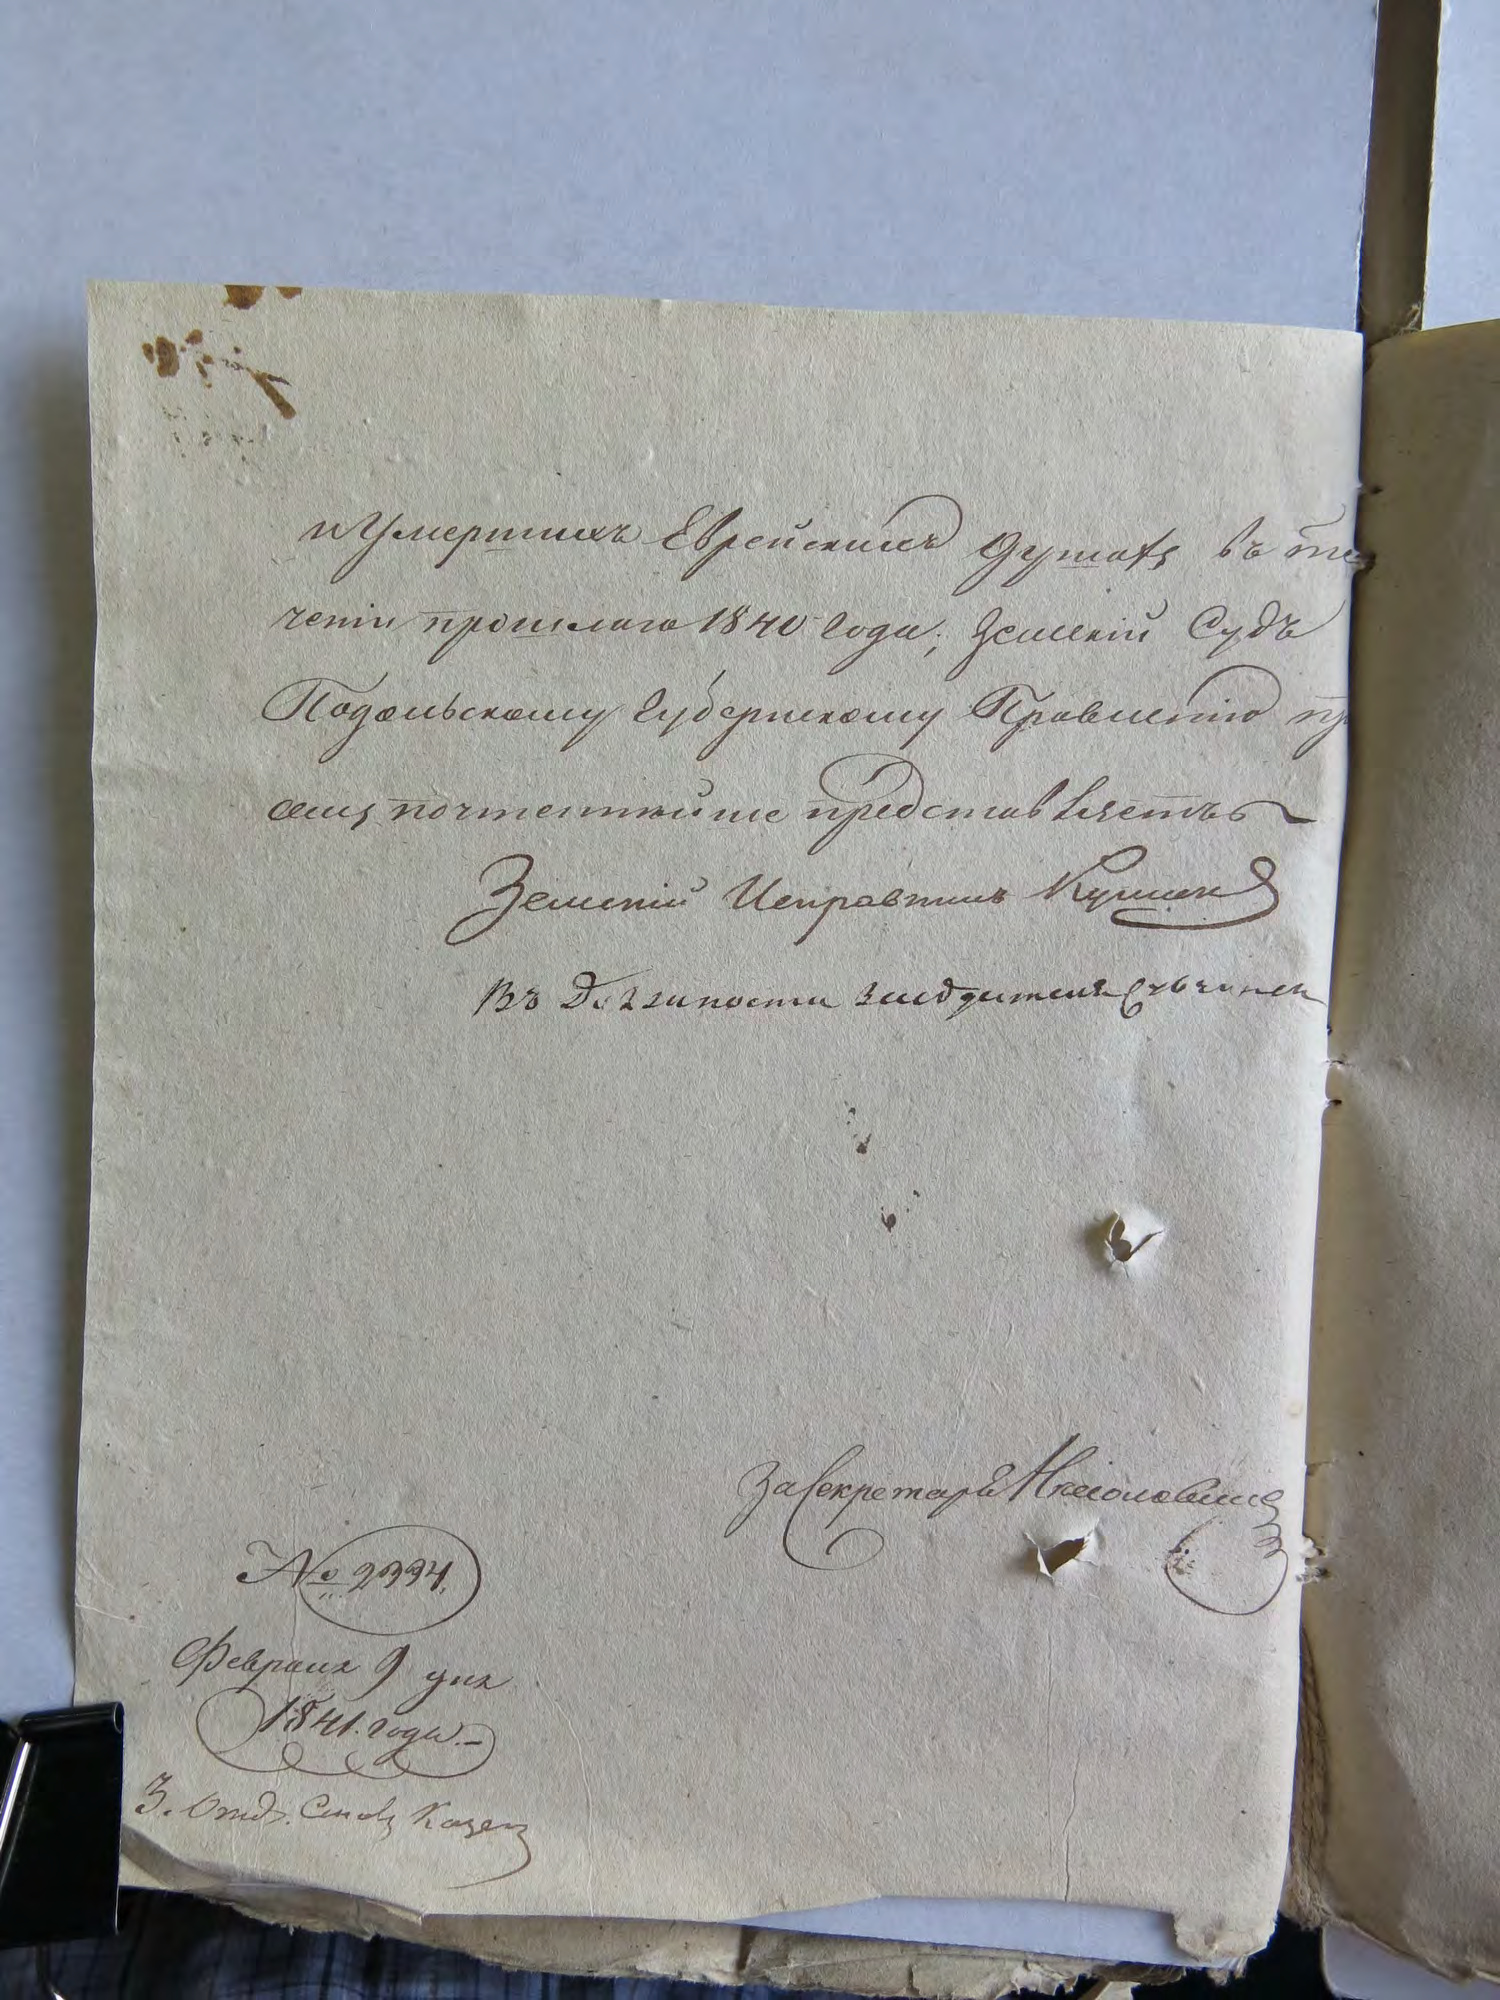 и Умершихъ Еврейскихъ душахъ въ те
ченіи прошлаго 1840 года, Земскій Судъ
Подольскому Губернскому Правленію пр
семъ почтеннѣйше представляетъ
Земскій Исправникъ
Въ Должности Засѣдателя
За Секретаря
№ 2394.
Февраля 9 дня
1841. года.
3. Отд. Столъ Казен